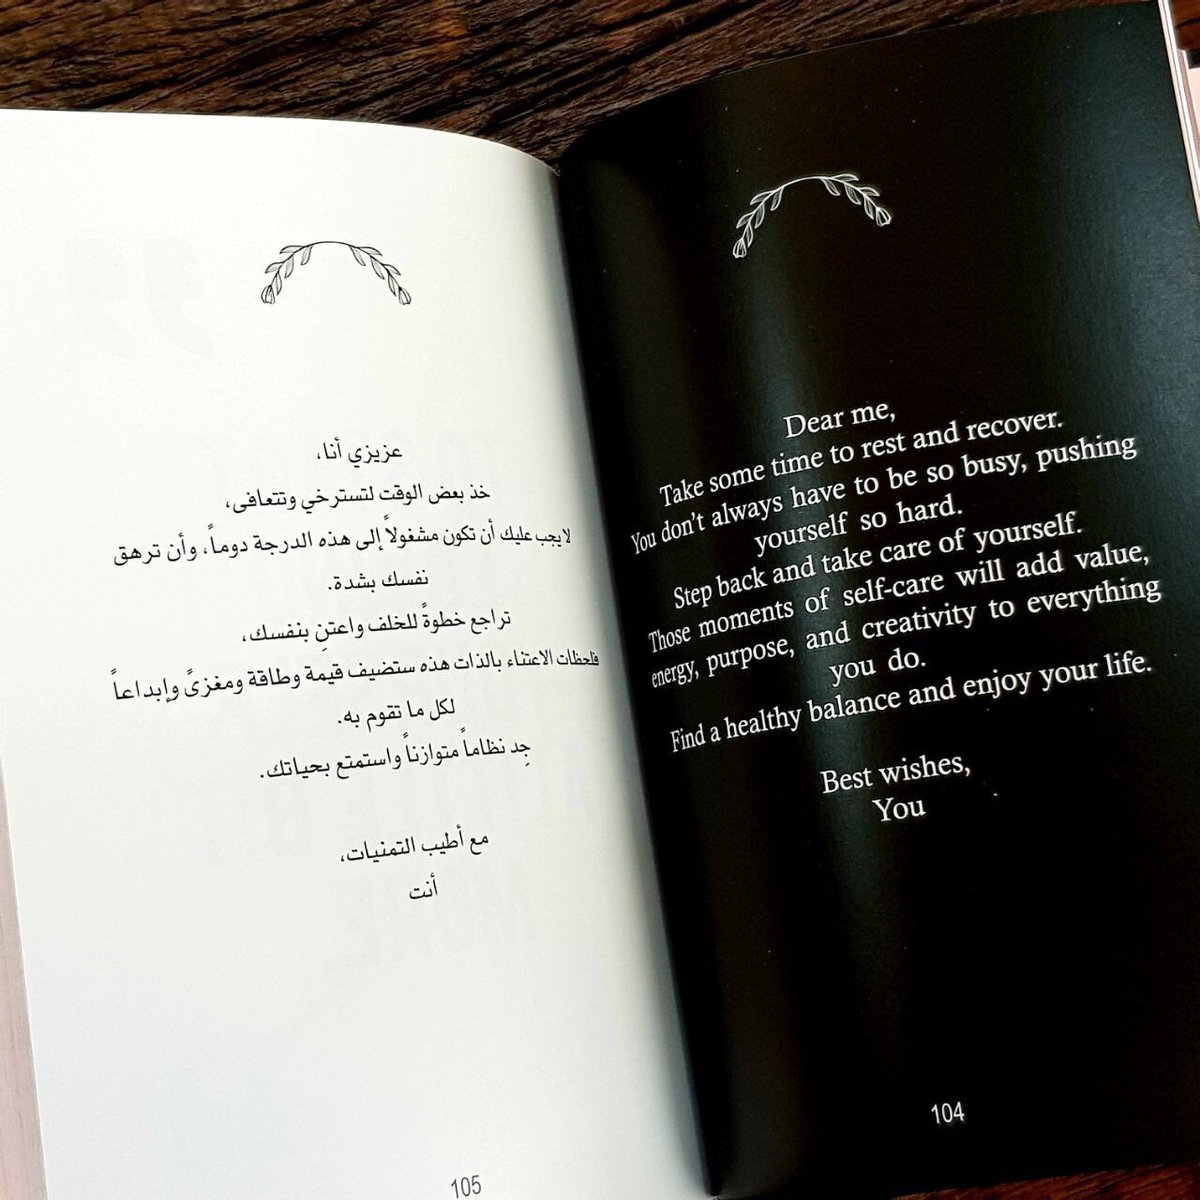 Dear me,
Take some time to rest and recover.
You don't always have to be so busy, pushing
yourself so hard.
Step back and take care of yourself.
Those moments of self-care will add value,
energy, purpose, and creativity to everything
you do.
Find a healthy balance and enjoy your life.
Best wishes,
You
104
عزيزي أنا،
خذ بعض الوقت لتسترخي وتتعافى،
لا يجب عليك أن تكون مشغولاً إلى هذه الدرجة دوماً، وأن ترهق
نفسك بشدة.
تراجع خطوةً للخلف واعتنِ بنفسك،
فلحظات الاعتناء بالذات هذه ستضيف قيمة وطاقة ومغزىً وإبداعاً
لكل ما تقوم به.
جِد نظاماً متوازناً واستمتع بحياتك.
مع أطيب التمنيات،
أنت
105